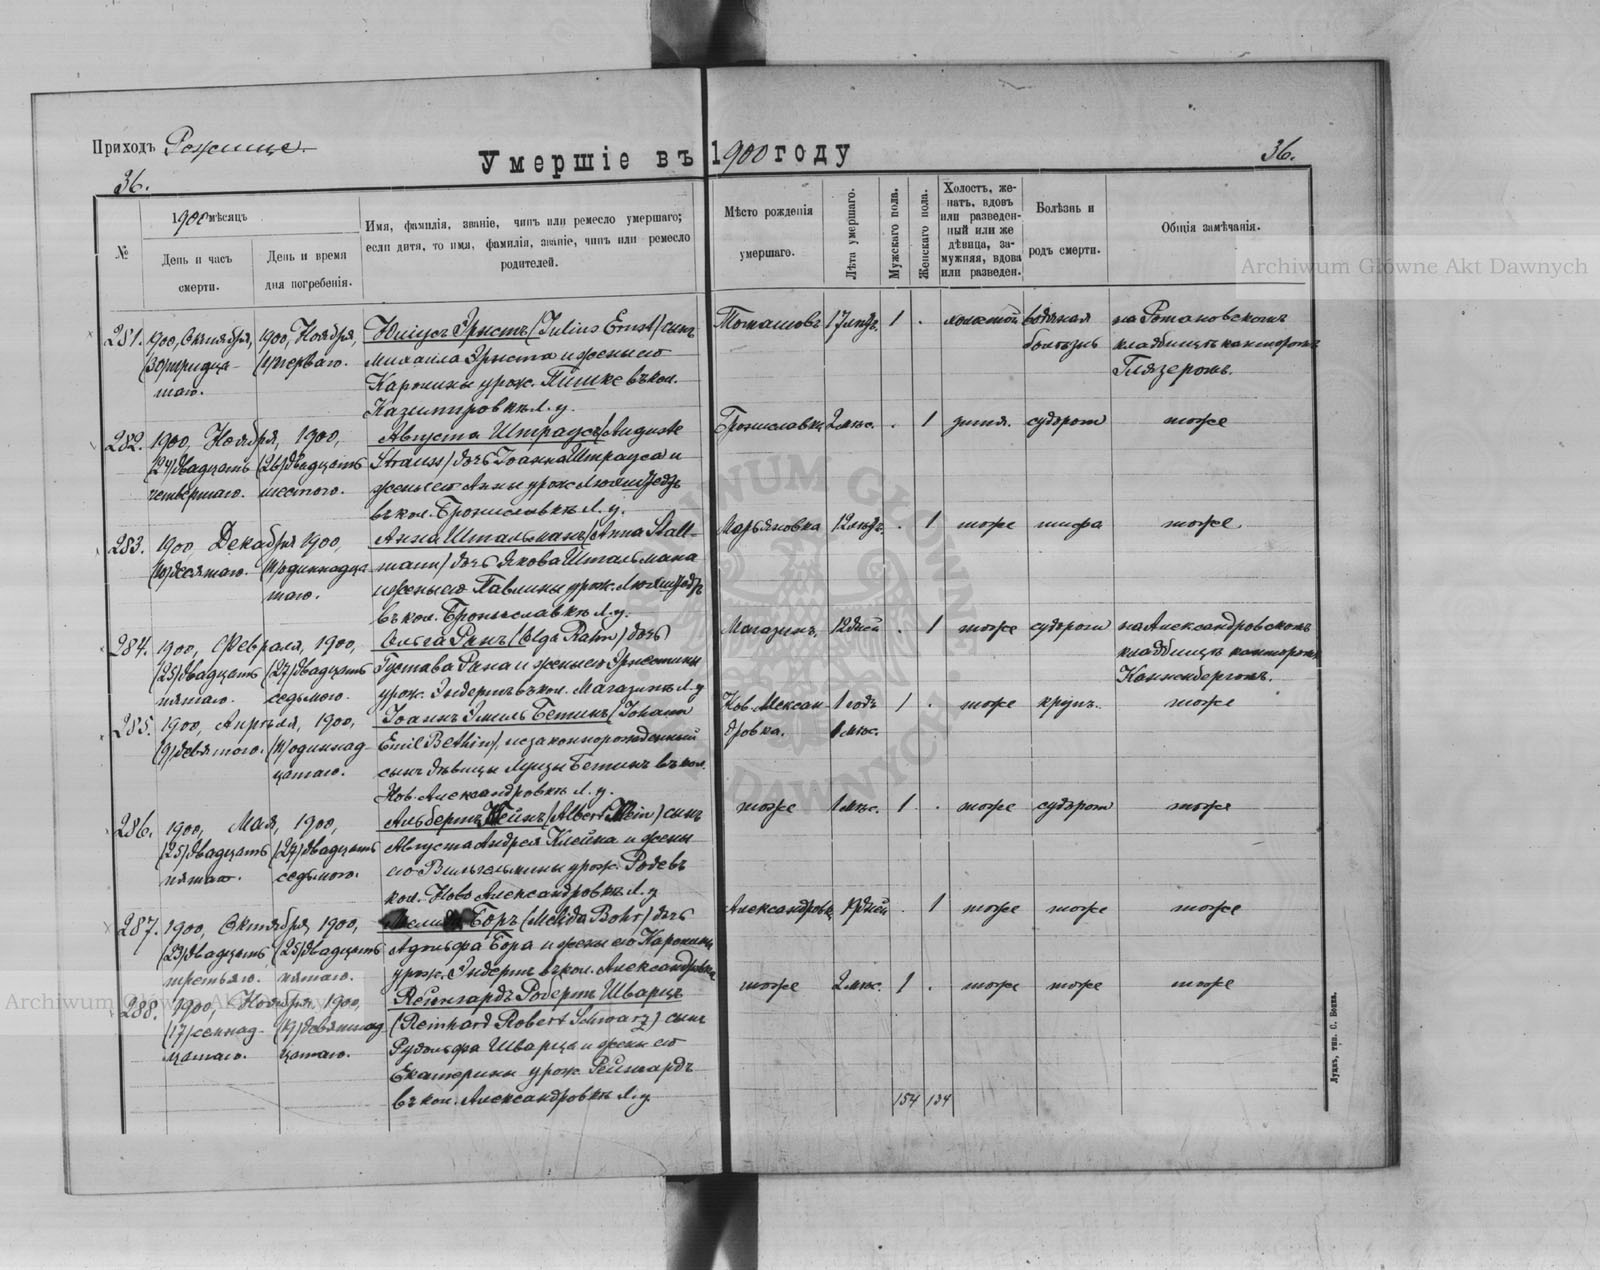 Приходъ Рожище.
Умершіе въ 1900 году
36.
36.
№
1900 мѣсяцъ
День и часъ смерти.
День и время дня погребенія.
Имя, фамилія, званіе, чинъ или ремесло умершаго;
если дитя, то имя, фамилія, званіе, чинъ или ремесло
родителей.
Мѣсто рожденія
умершаго.
Лѣта умершаго.
Мужскаго пола.
Женскаго пола.
Холостъ, же-
натъ, вдовъ
или разведен-
ный или же
дѣвица, за-
мужняя, вдова
или разведен.
Болѣзнь и
родъ смерти.
Общія замѣчанія.
281. 1900, Октября, 1900, Ноября, Юліусъ Эрнстъ (Julius Ernst) сынъ
(30) тридца- (1) перваго. Михаила Эрнста и жены его
таго. Каролины урож. Пішке въ кол.
Казимировкѣ Л. у.
Томашовъ 17 лѣтъ. 1 . холостой водяная на Романовскомъ
болѣзнь кладбищѣ канторомъ
Глязеромъ.
282. 1900, Ноября, 1900, Августа Штраусъ (Auguste
(24) двадцать (26) двадцать Strauss) дочь Іоанна Штрауса и
четвертаго. шестого. жены его Анны урож.
въ кол. Брониславкѣ Л. у.
Брониславка 2 мѣс. . 1 дитя. судорог тоже
283. 1900, Декабря 1900, Анна Штальманъ (Anna Stall-
(10) десятаго. (11) одиннадца mann) дочь Якова Штальмана
таго. и жены его Павлины урож.
въ кол. Брониславкѣ Л. у.
Марьяновка 12 лѣтъ. . 1 тоже тифа тоже.
284. 1900, Февраля, 1900, Ольга Ранъ (Olga Rahn) дочь
(25) двадцать (27) двадцать Густава Рана и жены его Эрнстины
пятаго. седьмого. урож. Эндертъ въ кол. Магазинкѣ Л. у
Магазинъ. 12 дней . 1 тоже судороги на Александровскомъ
кладбищѣ канторомъ
Каннебергомъ.
285. 1900, Апрѣля, 1900, Іоаннъ Эмиль Бетинъ (Johann
(9) девятого. (11) одиннад- Emil Bethin), незаконнорожденный
цатаго. сынъ дѣвицы Луизы Бетинъ въ кол.
Нов. Александровкѣ Л. у.
Нов. Алексан- 1 годъ 1 . тоже крупъ. тоже
дровка. 1 мѣс.
286. 1900, Мая, 1900, Альбертъ Клейнъ (Albert Klein) сынъ
(25) двадцать (27) двадцать Августа Андрея Клейна и жены
пятаго. седьмого. его Вильгельмины урож. Роде въ
кол. Ново Александровкѣ Л. у
тоже 1 мѣс. 1 . тоже судорог тоже
287. 1900, Октября, 1900, Боръ (Melida Bohr) дочь
(23) двадцать (25) двадцать Адольфа Бора и жены его Каролины
третьяго. пятаго. урож. Эндертъ въ кол. Александровка
Александровка дней . 1 тоже тоже тоже
288. 1900, Ноября, 1900, Рейнгардъ Робертъ Шварцъ
(17) семнад- (19) девятнад (Reinhard Robert Schwarz) сынъ
цатаго. цатаго. Рудольфа Шварца и жены его
Екатерины урож. Рейнгардъ
въ кол. Александровкѣ Л. у
тоже 2 мѣс. 1 . тоже тоже тоже
154 134
Луцкъ, тип. С. Бонка.
Archiwum Główne Akt Dawnych
Archiwum Główne Akt Dawnych
ARCHIWUM GŁÓWNE AKT DAWNYCH